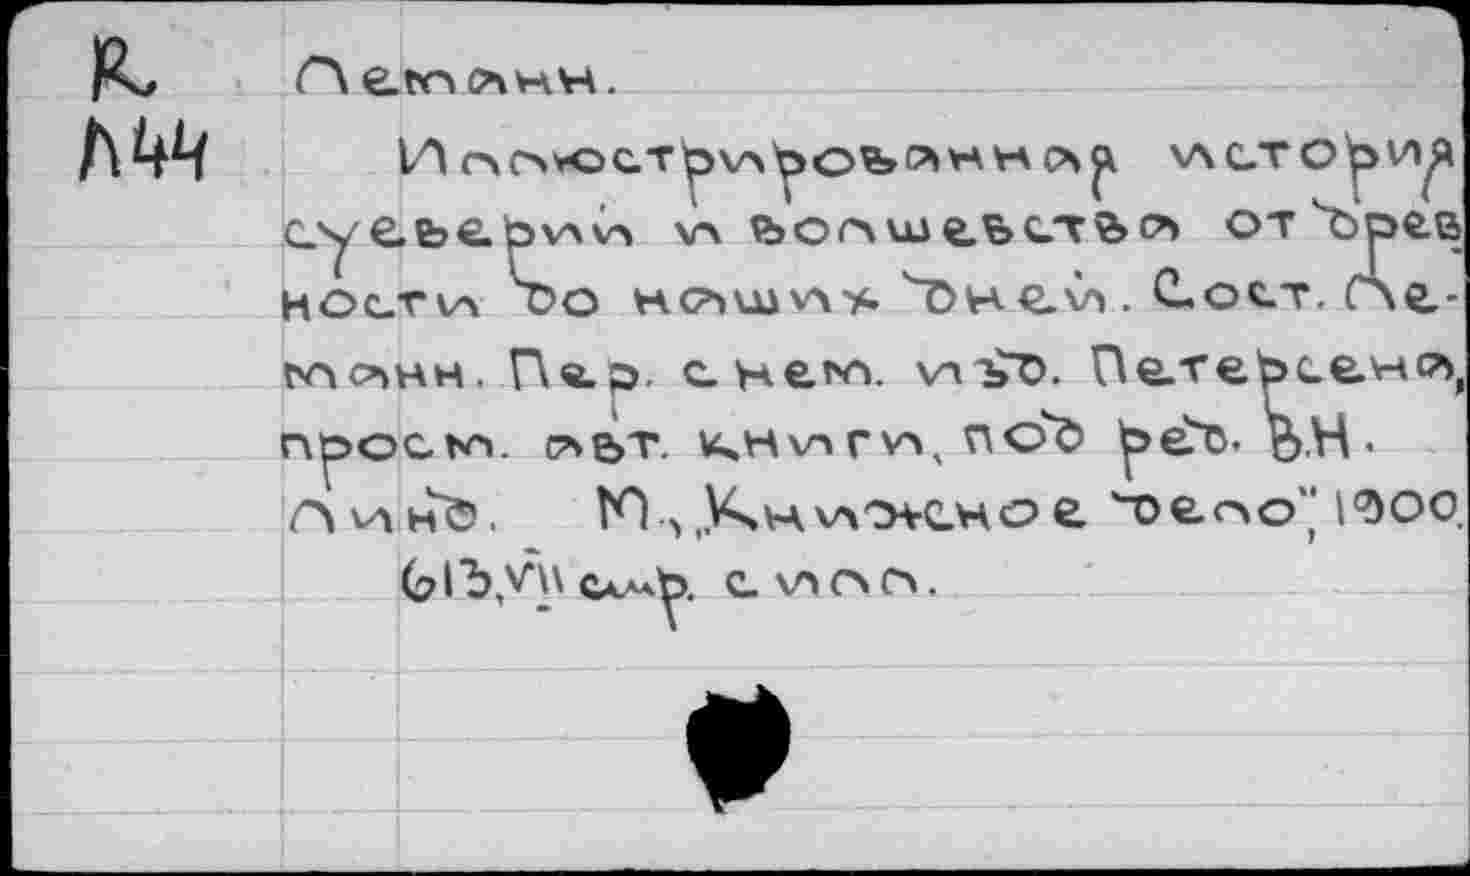 R
Л44
Леманн.
Иллюстрированная история
суеверий и волшебства от древ
ности до наших дней. Сост. Ле-
манн. Пер. с нем. изд. Петерсена,
просм. авт. книги, под ред. В.Н.
Линд. М., „Книжное дело", 1900.
613,VII стр. с илл.